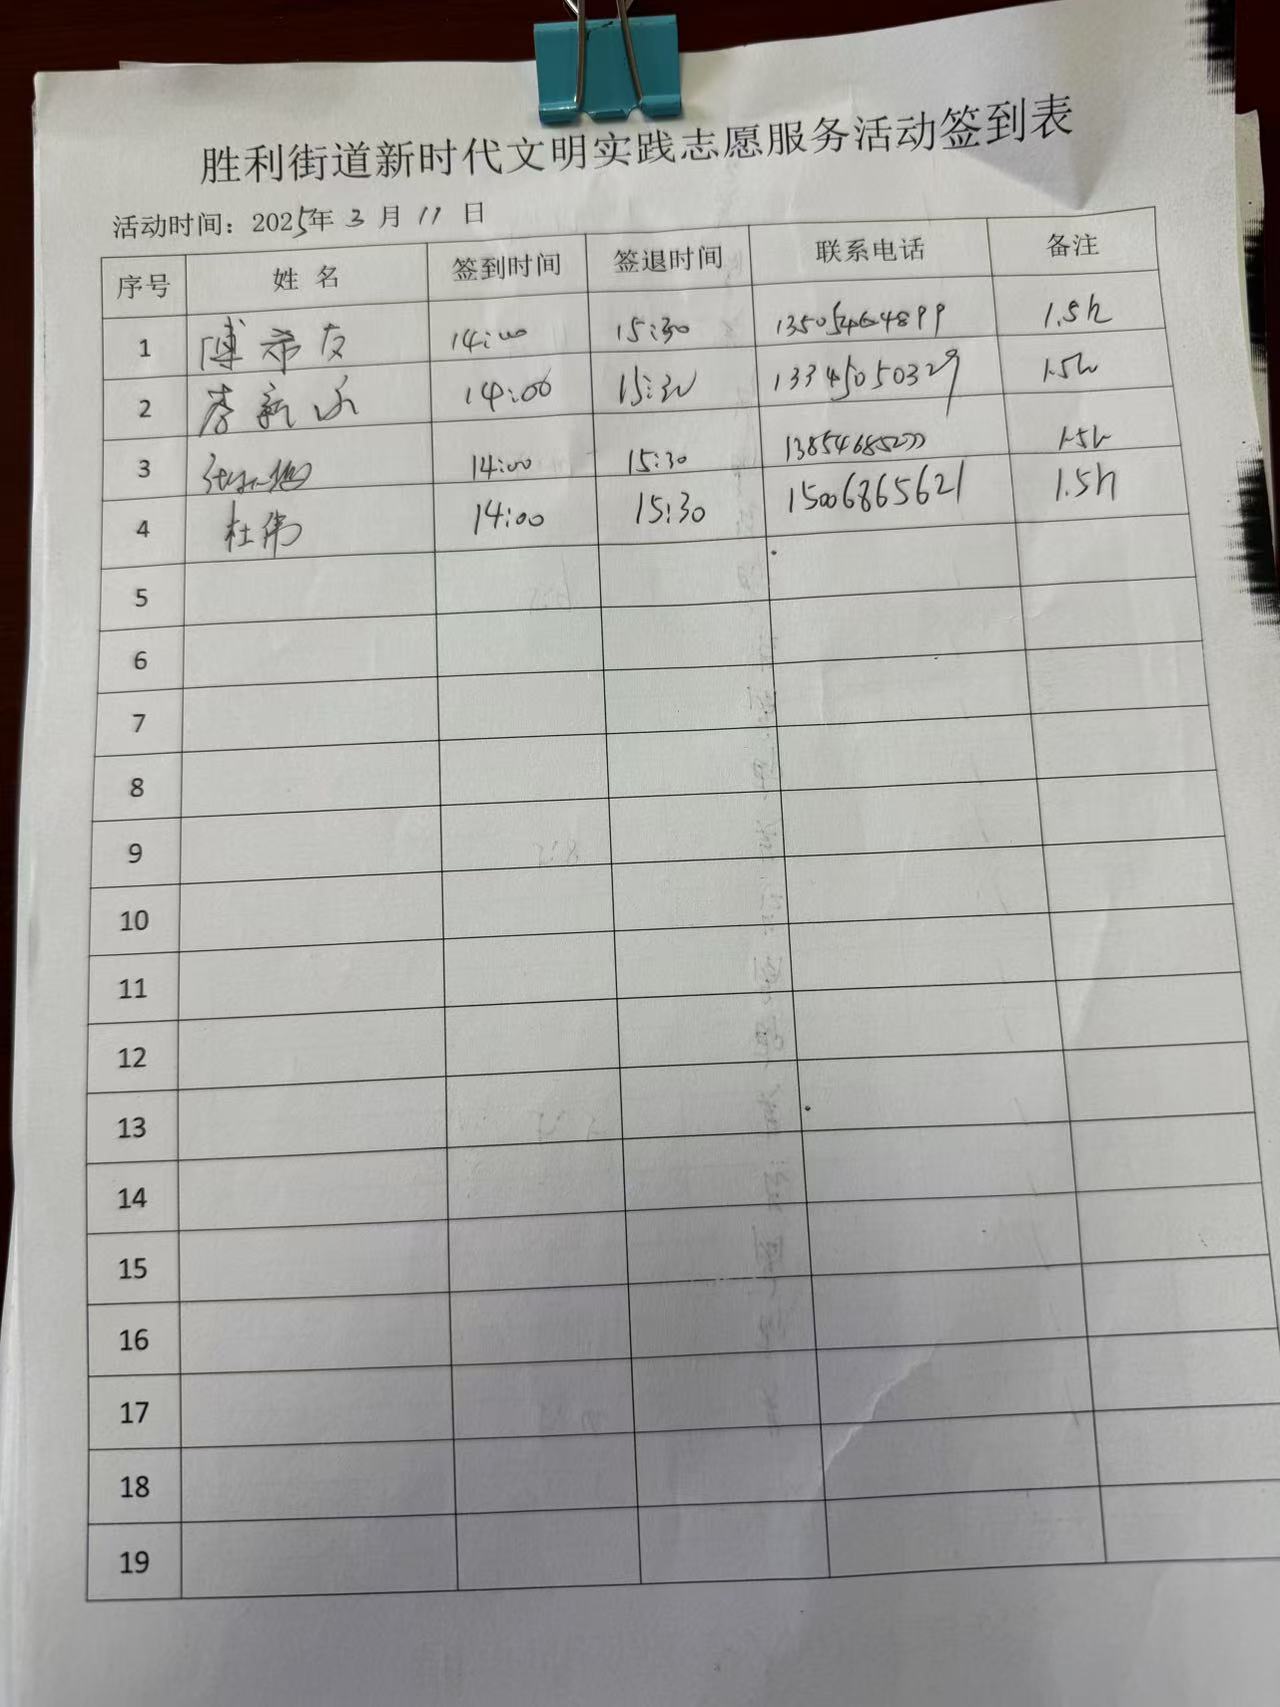 胜利街道新时代文明实践志愿服务活动签到表
活动时间：2025年 3 月 11 日
序号 姓 名 签到时间 签退时间 联系电话 备注
1 傅希友 14:00 15:30 13505464899 1.5h
2 李新 14:00 15:30 13345050329 1.5h
3 14:00 15:30 1.5h
4 杜伟 14:00 15:30 15006865621 1.5h
5
6
7
8
9
10
11
12
13
14
15
16
17
18
19